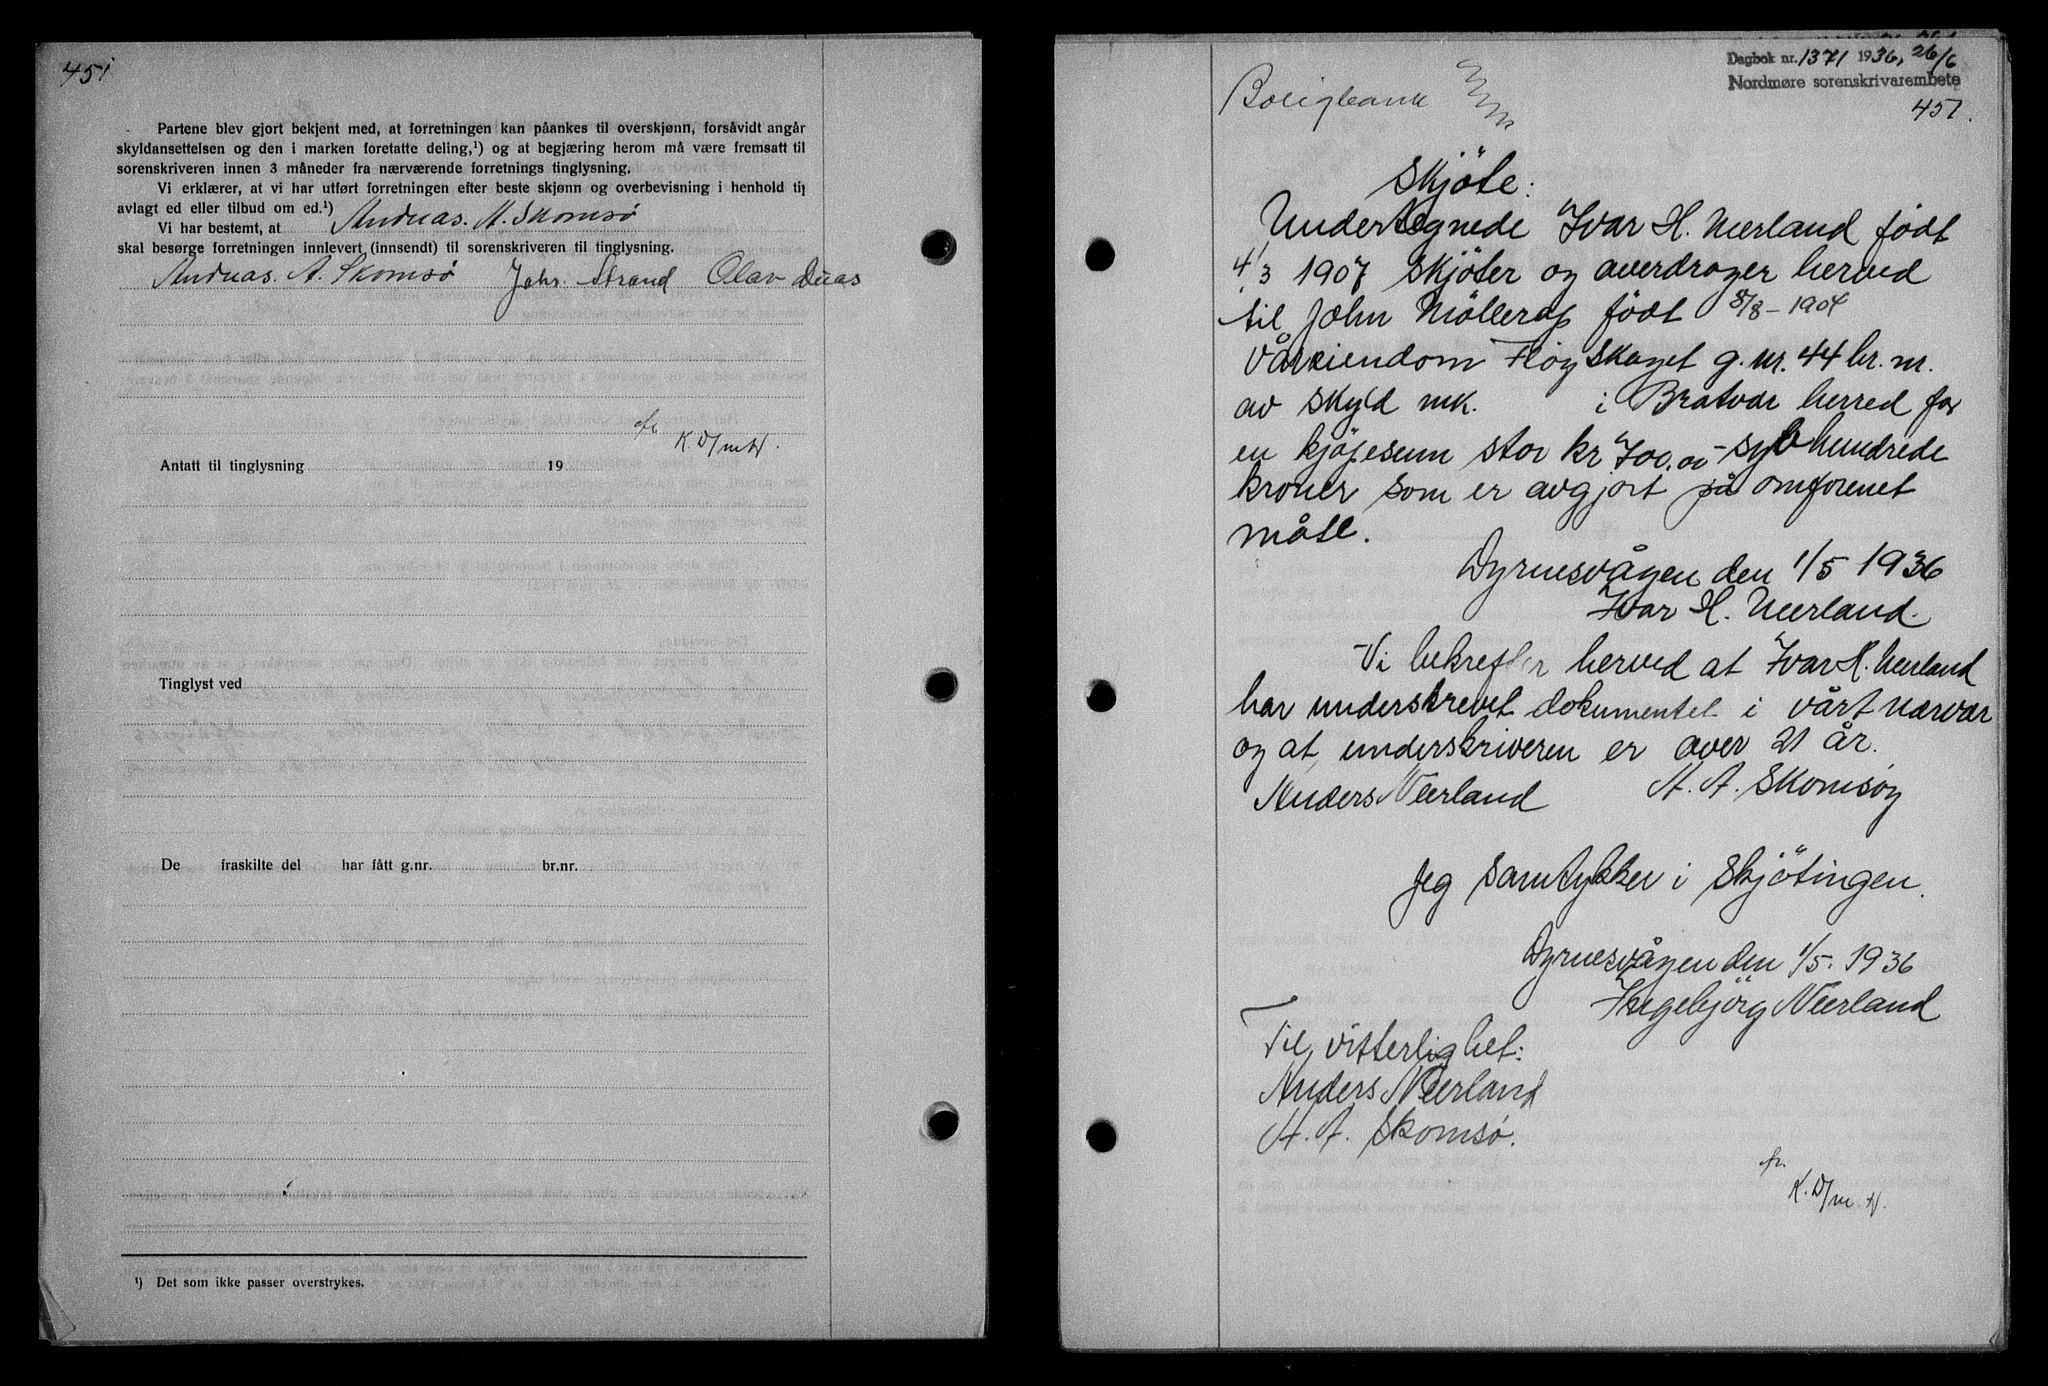 451
Partene blev gjort bekjent med, at forretningen kan påankes til overskjønn, forsåvidt angår
skyldansettelsen og den i marken foretatte deling,¹) og at begjæring herom må være fremsatt til
sorenskriveren innen 3 måneder fra nærværende forretnings tinglysning.
Vi erklærer, at vi har utført forretningen efter beste skjønn og overbevisning i henhold til
avlagt ed eller tilbud om ed.¹)
Vi har bestemt, at Andreas. A. Skomsø
skal besørge forretningen innlevert (innsendt) til sorenskriveren til tinglysning.
Andreas. A. Skomsø Johs. Strand Olav
K. D/m.H.
Antatt til tinglysning 19
Tinglyst ved
De fraskilte del har fått g.nr. br.nr.
¹) Det som ikke passer overstrykes.
Dagbok nr. 1371 1936, 26/6
Nordmøre sorenskrivarembete
Boligbank
451.
Skjöte:
Undertegnede Ivar H. Neerland født
4/3 1907 skjöter og averdrager herved
til John Möllerop födt 8/8-1904
vår eiendom Fløyskaget g. nr. 44 br. nr.
av skyld mk. i Bratvær herred for
en kjöpesum stor kr 700,00 - syv hundrede
kroner som er avgjort på omforenet
måte.
Dyrnesvågen den 1/5 1936
Ivar H. Neerland.
Vi bekrefter herved at Ivar H. Neerland
har underskrevet dokumentet i vårt nærvær
og at underskriveren er over 21 år.
Anders Neerland A. A. Skomsøy
Jeg samtykker i Skjötingen.
Dyrnesvågen den 1/5. 1936
Ingebjörg Neerland
Til vitterlighet:
Anders Neerland
A. A. Skomsø.
K. D/m. H.